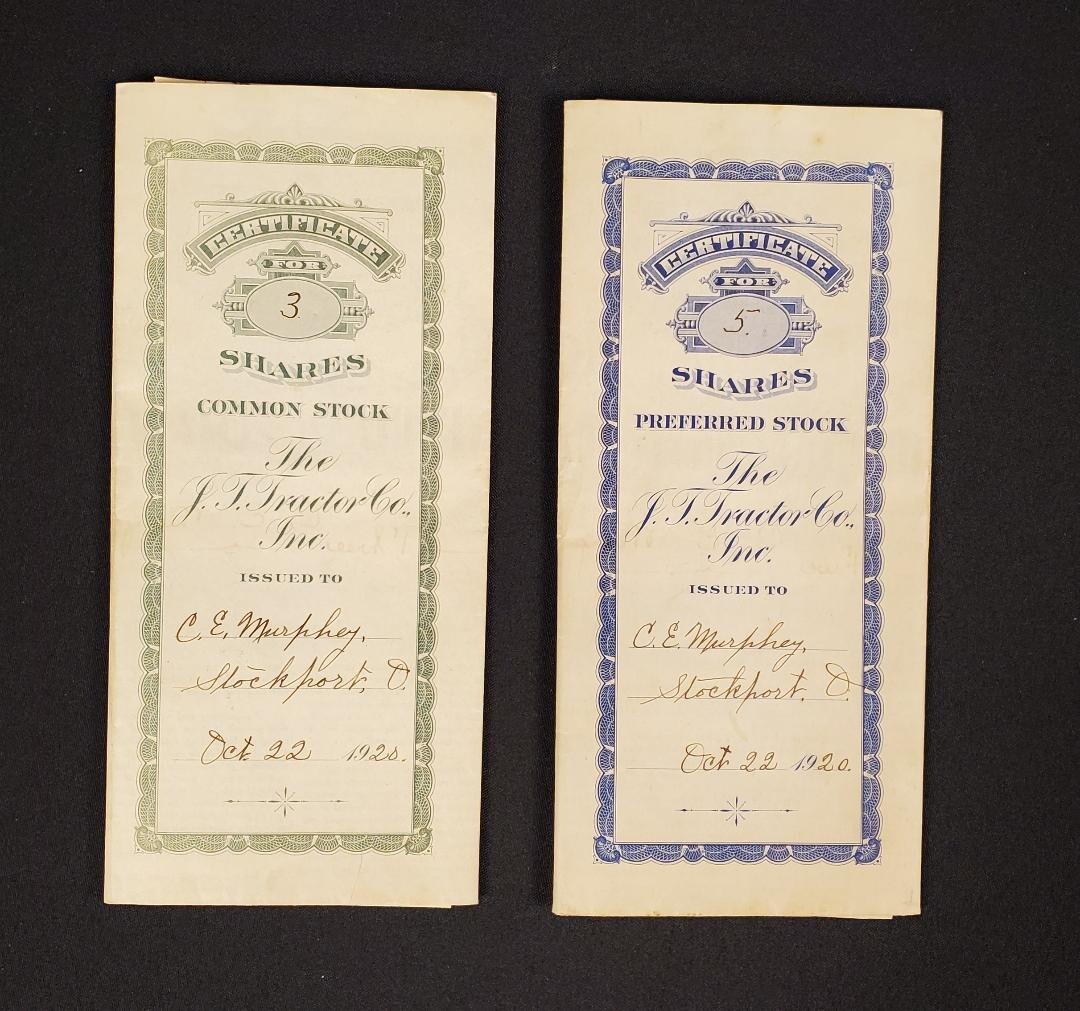 CERTIFICATE
FOR
3
SHARES
COMMON STOCK
The
J. T. Tractor Co.,
Inc.
ISSUED TO
C. E. Murphey,
Stockport, O.
Oct. 22 1920.
CERTIFICATE
FOR
5.
SHARES
PREFERRED STOCK
The
J. T. Tractor Co.,
Inc.
ISSUED TO
C. E. Murphey,
Stockport, O.
Oct 22 1920.